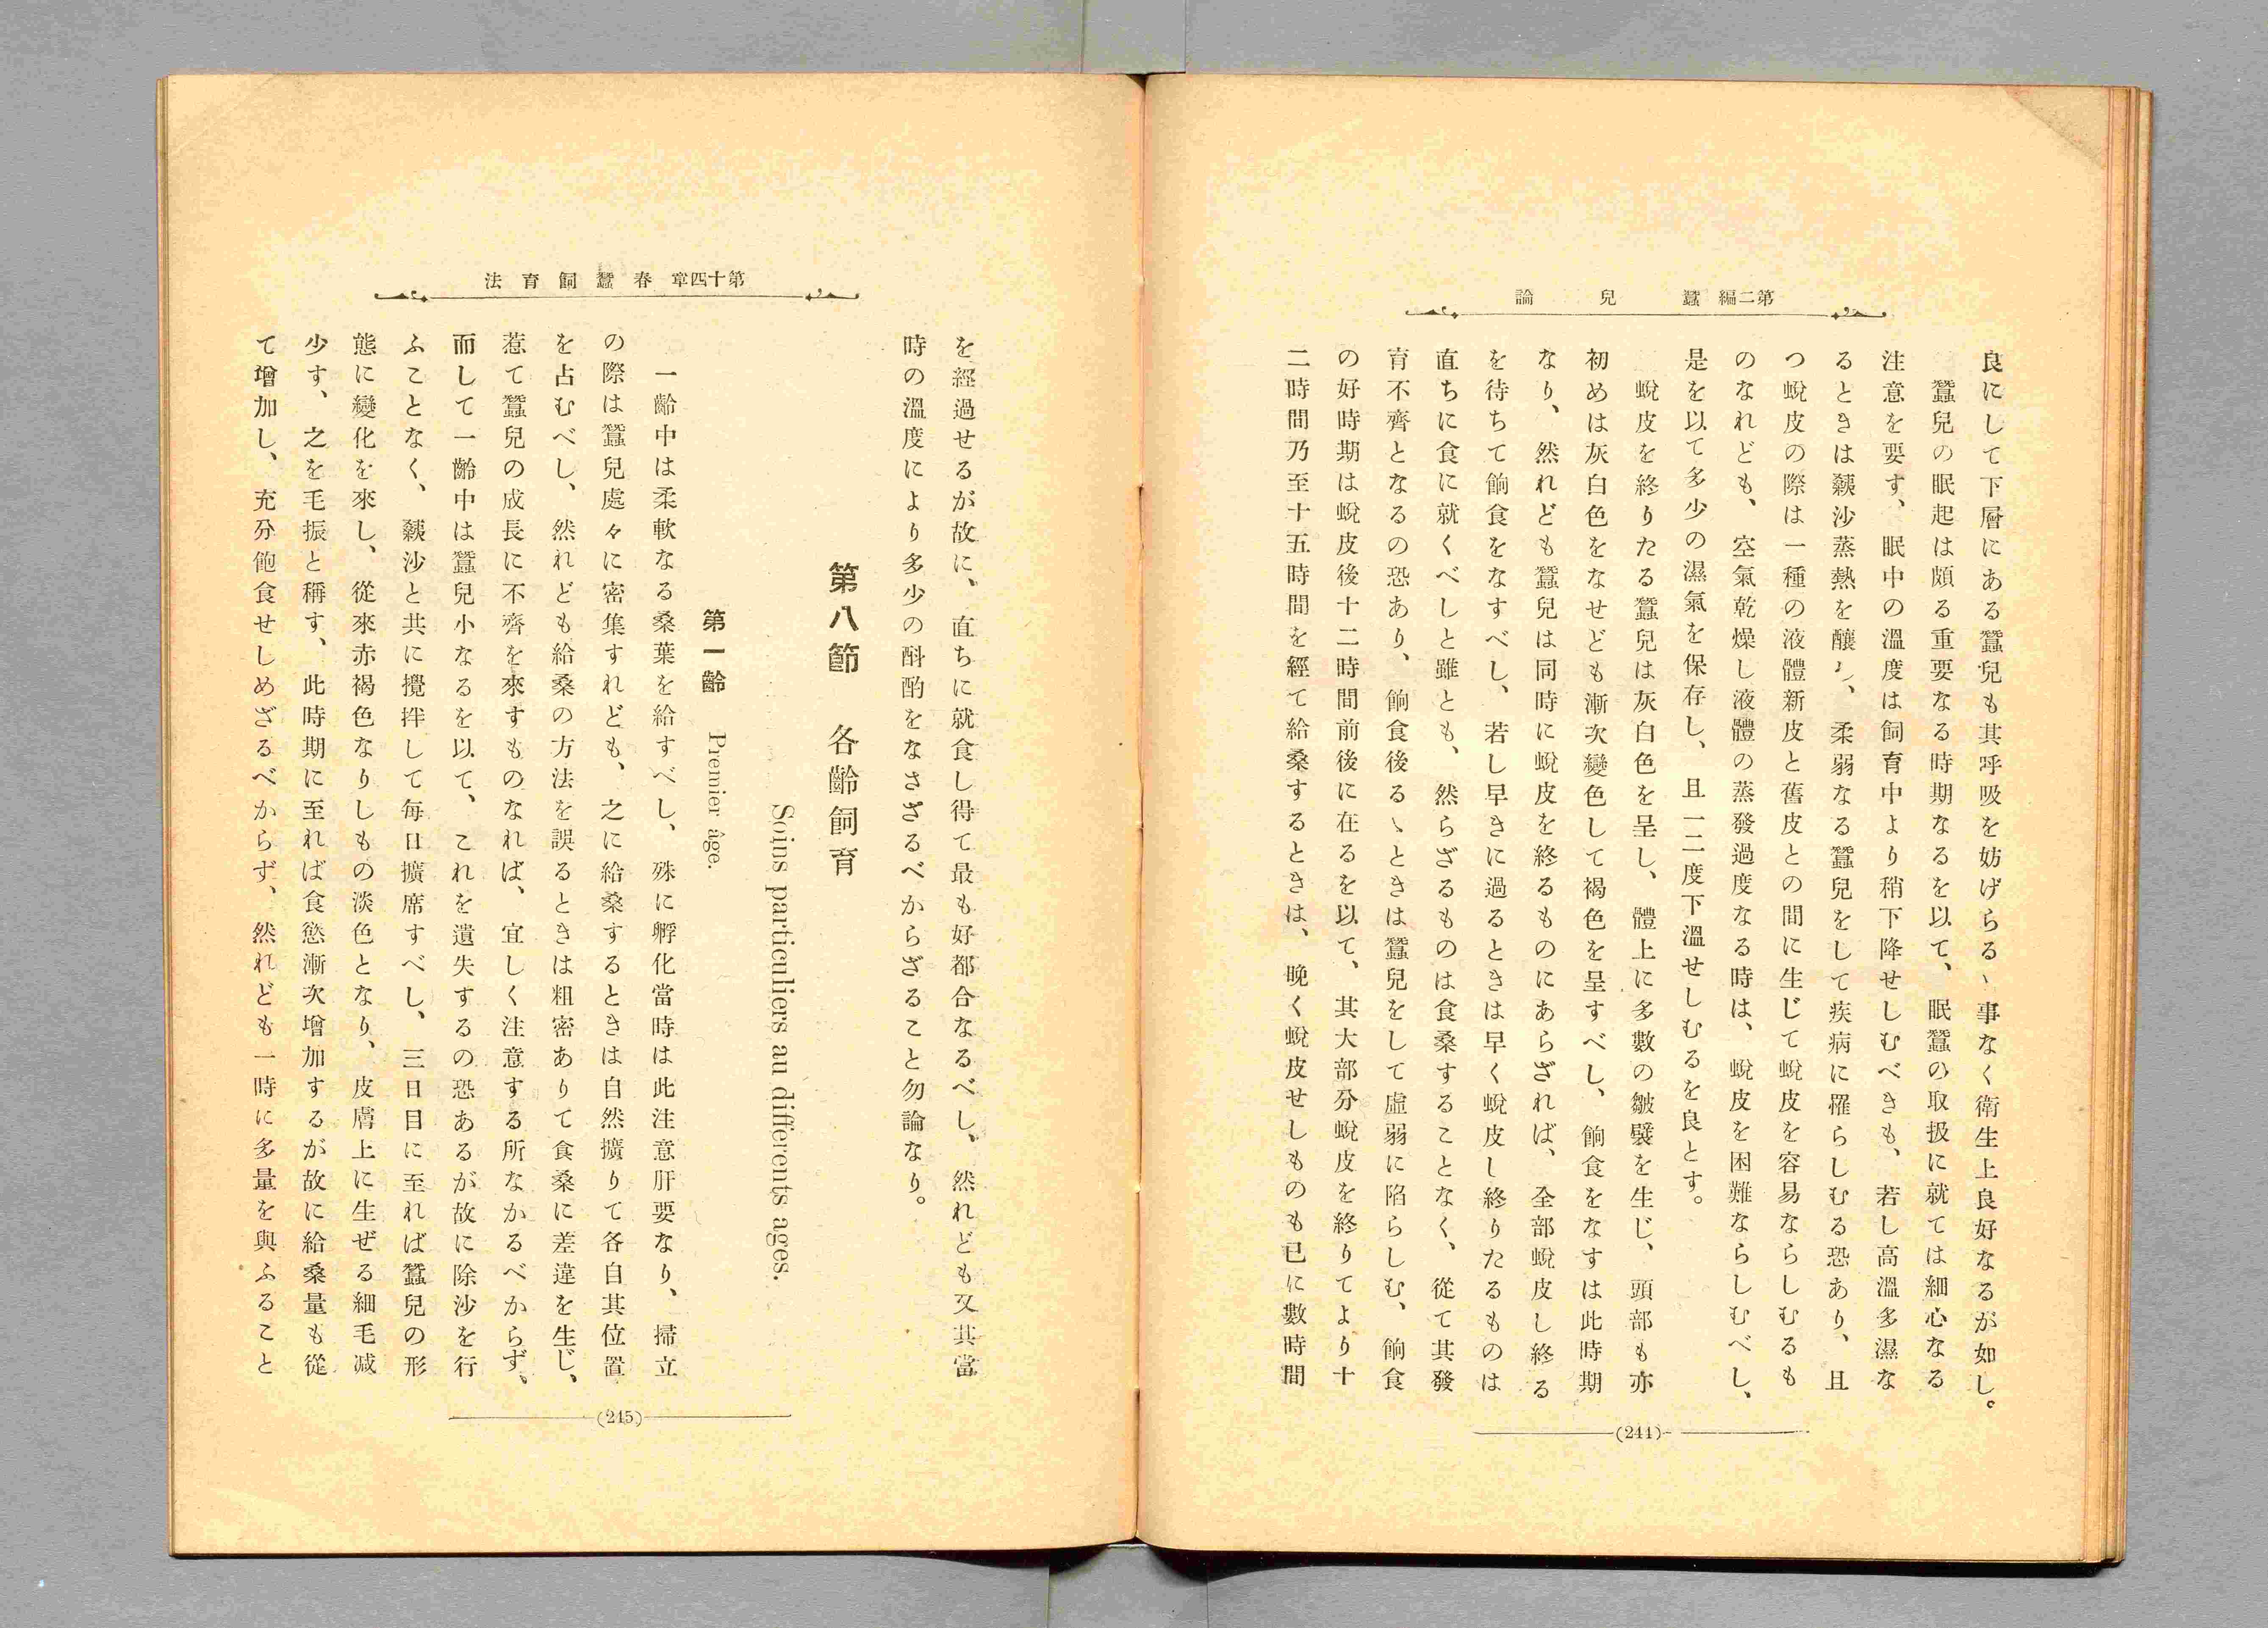 第二編　蠶兒論
良にして下層にある蠶兒も其呼吸を妨げらるゝ事なく衛生上良好なるが如し。
蠶兒の眠起は頗る重要なる時期なるを以て、眠蠶の取扱に就ては細心なる
注意を要す、眠中の溫度は飼育中より稍下降せしむべきも、若し高溫多濕な
るときは蘱沙蒸熱を釀し、柔弱なる蠶兒をして疾病に罹らしむる恐あり、且
つ蛻皮の際は一種の液體新皮と舊皮との間に生じて蛻皮を容易ならしむるも
のなれども、空氣乾燥し液體の蒸發過度なる時は、蛻皮を困難ならしむべし、
是を以て多少の濕氣を保存し、且一二度下溫せしむるを良とす。
蛻皮を終りたる蠶兒は灰白色を呈し、體上に多數の皺襞を生じ、頭部も亦
初めは灰白色をなせども漸次變色して褐色を呈すべし、餉食をなすは此時期
なり、然れども蠶兒は同時に蛻皮を終るものにあらざれば、全部蛻皮し終る
を待ちて餉食をなすべし、若し早きに過るときは早く蛻皮し終りたるものは
直ちに食に就くべしと雖とも、然らざるものは食桑することなく、從て其發
育不齊となるの恐あり、餉食後るゝときは蠶兒をして虛弱に陷らしむ、餉食
の好時期は蛻皮後十二時間前後に在るを以て、其大部分蛻皮を終りてより十
二時間乃至十五時間を經て給桑するときは、晩く蛻皮せしものも已に數時間
(244)
第十四章　春蠶飼育法
を經過せるが故に、直ちに就食し得て最も好都合なるべし、然れども又其當
時の溫度により多少の酙酌をなさざるべからざること勿論なり。
第八節　各齡飼育
Soins particuliers au différents ages.
第一齡　Premier âge.
一齡中は柔軟なる桑葉を給すべし、殊に孵化當時は此注意肝要なり、掃立
の際は蠶兒處々に密集すれども、之に給桑するときは自然擴りて各自其位置
を占むべし、然れども給桑の方法を誤るときは粗密ありて食桑に差違を生じ、
惹て蠶兒の成長に不齊を來すものなれば、宜しく注意する所なかるべからず、
而して一齡中は蠶兒小なるを以て、これを遺失するの恐あるが故に除沙を行
ふことなく、蘱沙と共に攪拌して每日擴席すべし、三日目に至れば蠶兒の形
態に變化を來し、從來赤褐色なりしもの淡色となり、皮膚上に生ぜる細毛减
少す、之を毛振と稱す、此時期に至れば食慾漸次增加するが故に給桑量も從
て增加し、充分飽食せしめざるべからず、然れども一時に多量を與ふること
(245)